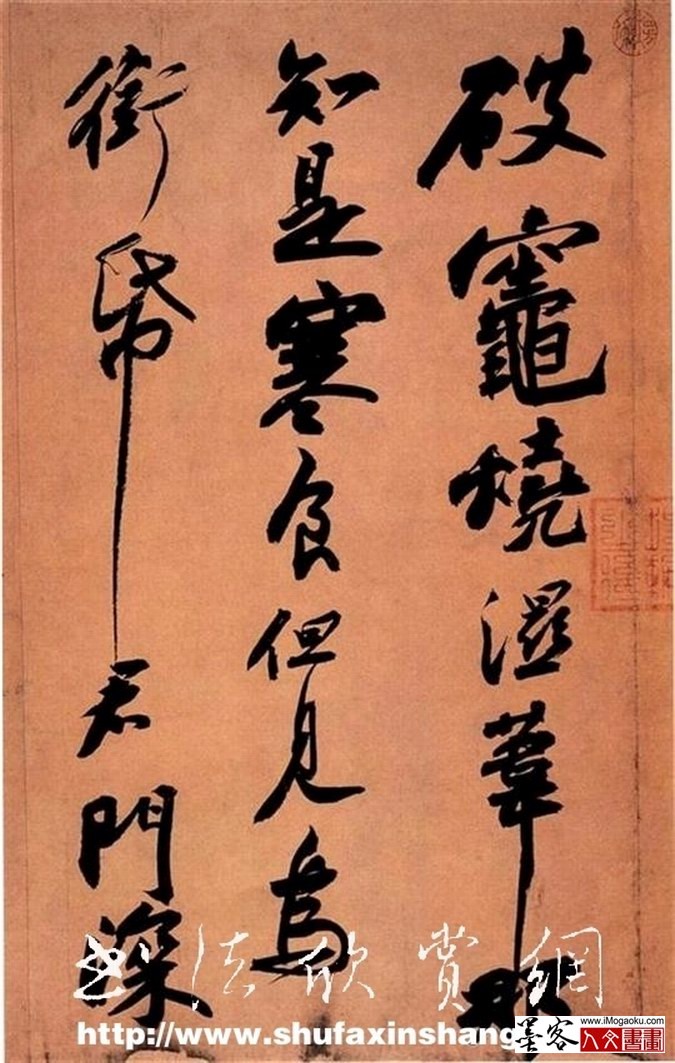 破竈燒溼葦那
知是寒食但見烏
銜帋君門深
书法欣赏網
http://www.shufaxinshang
www.iMogaoku.com
墨客人文書畫